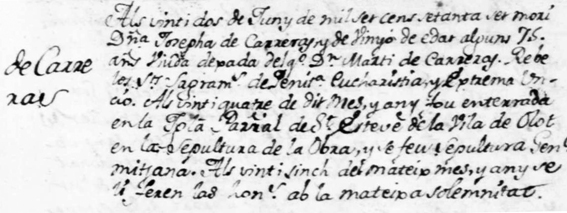 Als vint i dos de Juny de mil set cens setanta set morí
Dña Josepha de Carreras, y de Vinyó de edat alguns 75.
de Carre
ras
ans Viuda depada del qº Dr. Martí de Carreras. Rebé
los Sts. Sagramts. de Penitª. Eucharistia, y Extrema Un-
ció. Als vint i quatre de dit Mes, y any fou enterrada
en la Iglª Parrial de St. Esteve de la Vila de Olot
en la Sepultura de la Obra, y se feu Sepultura Genl.
mitjana. Als vint i sinch del mateix mes, y any se
li feren las honrs. ab la mateixa solemnitat.